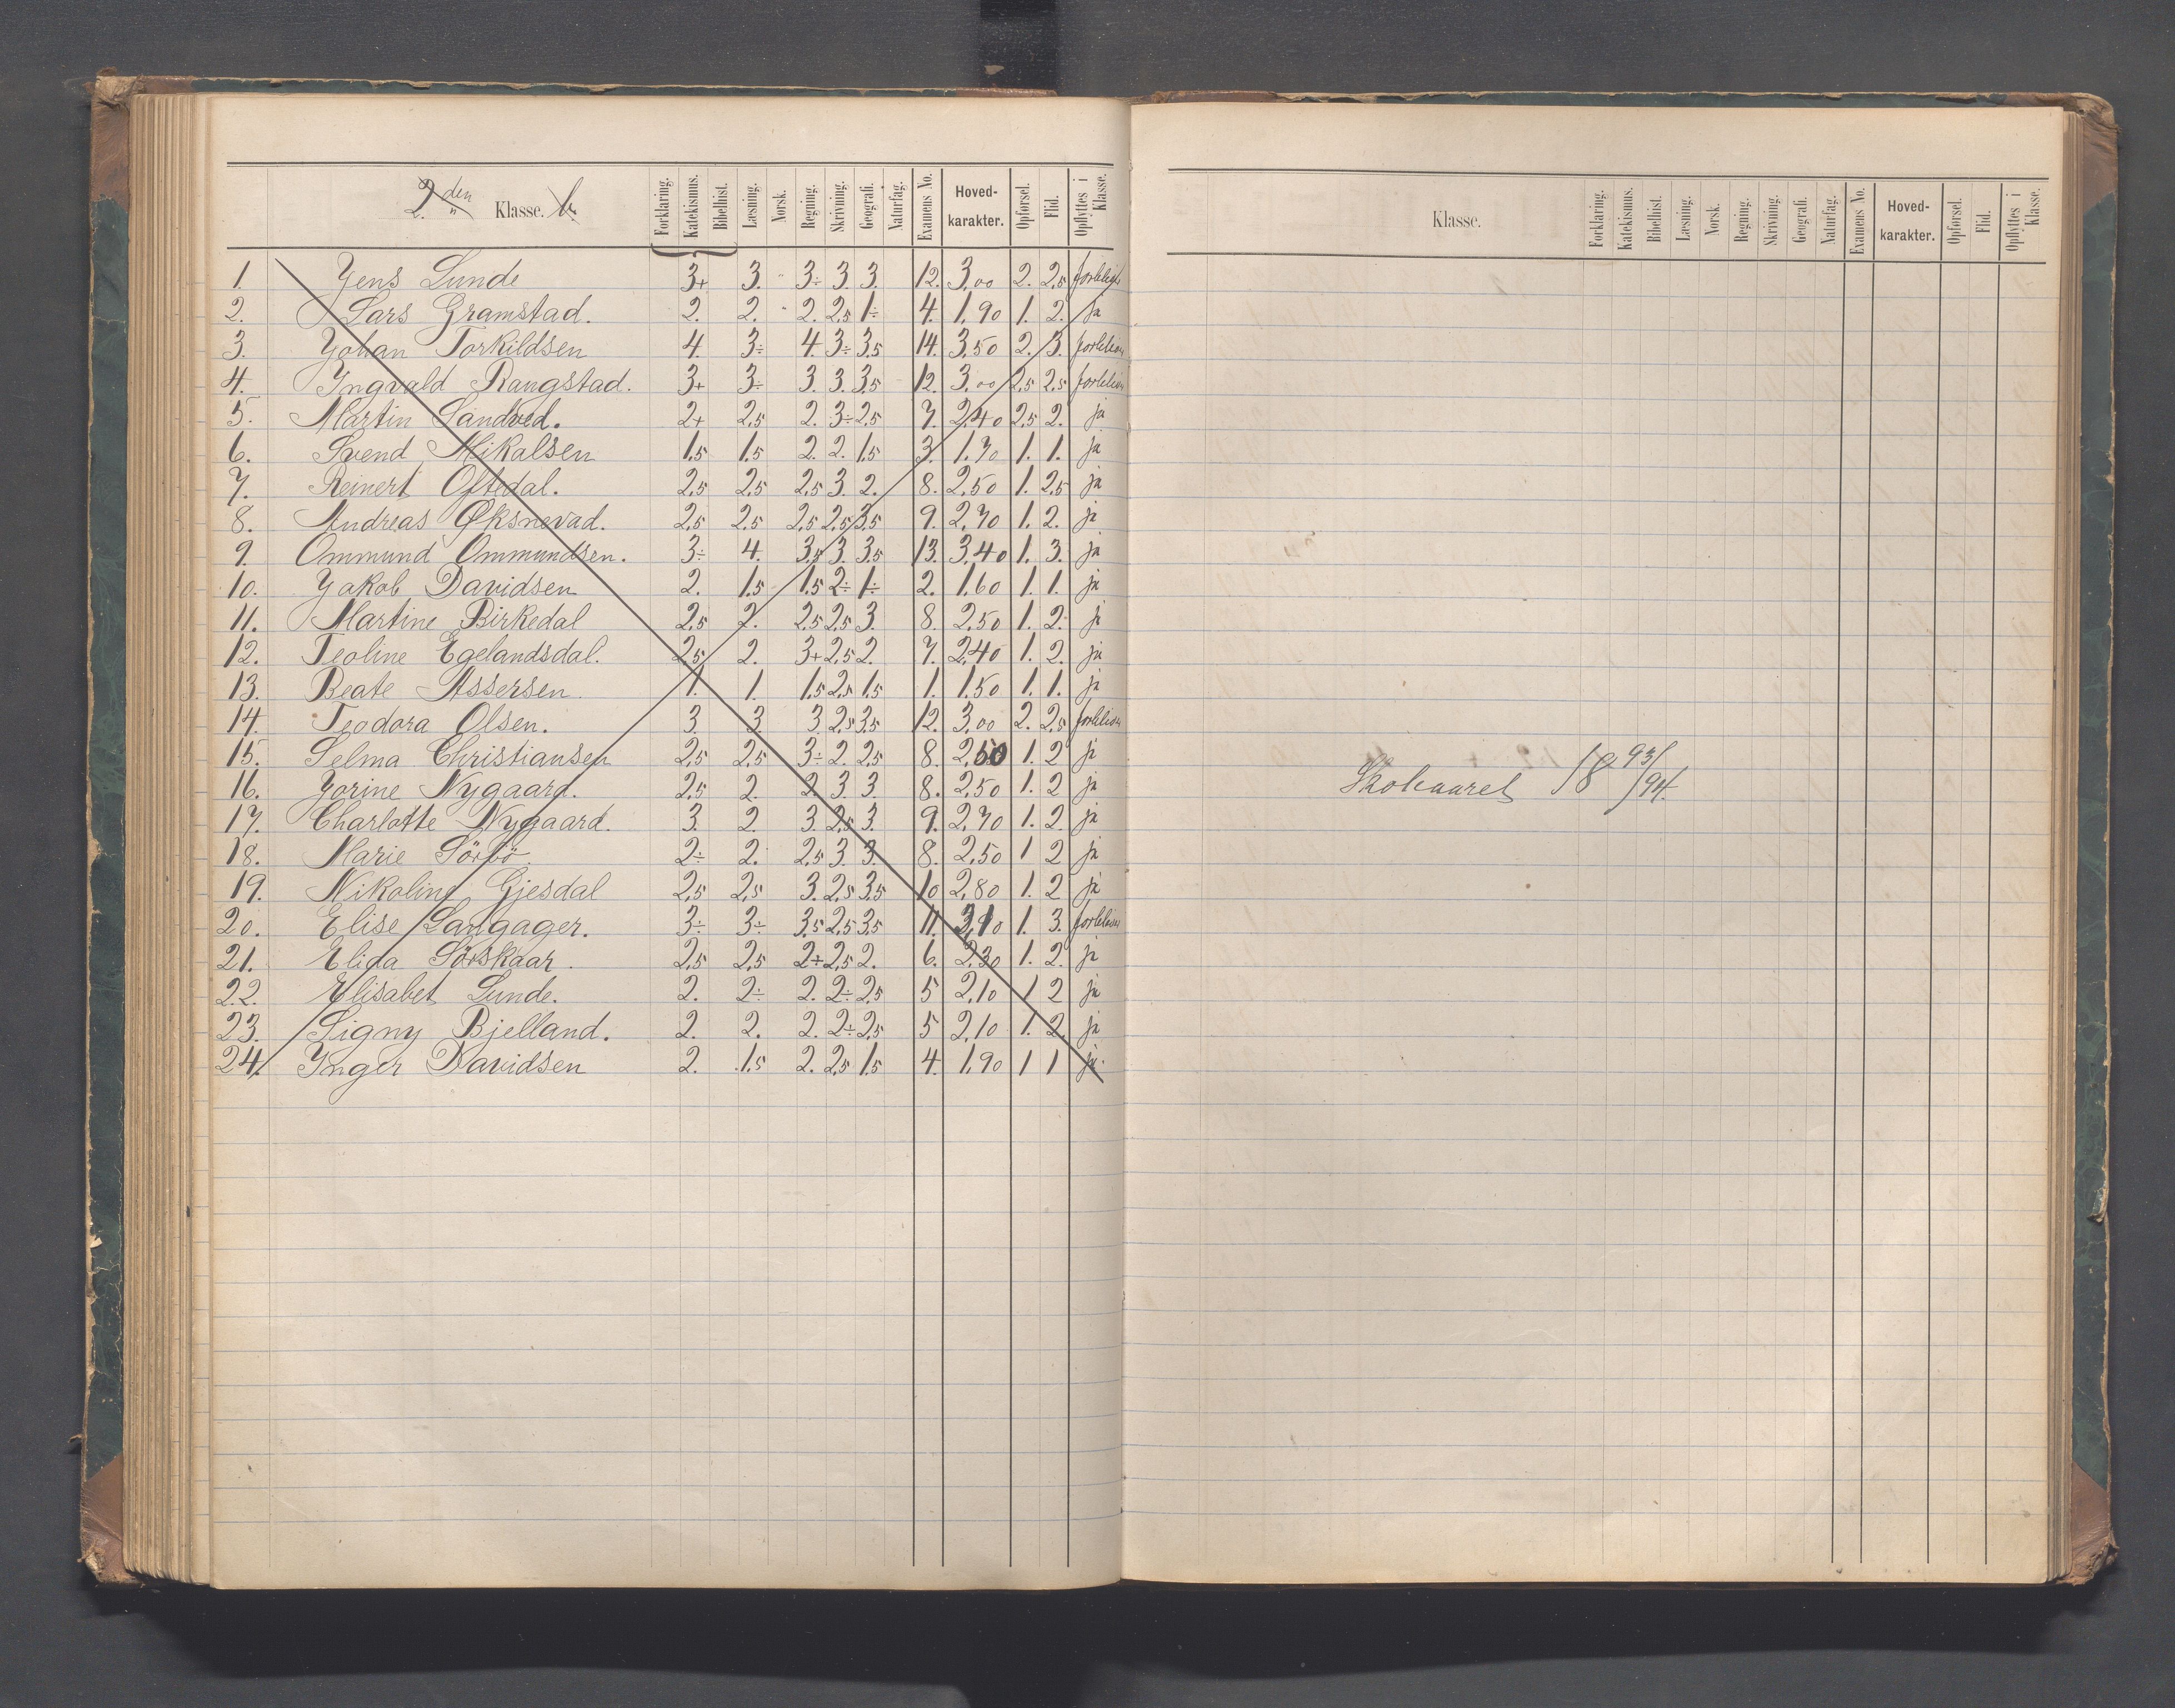 2den Klasse. b. Forklaring. Katekismus. Bibelhist. Læsning. Norsk. Regning. Skrivning. Geografi. Naturfag. Examens No. Hoved-karakter. Opførsel. Flid. Opflyttes i Klasse.
1. Jens Lunde 3+ 3. 3÷ 3. 3. 12. 3,00 2. 2,5
2. Lars Gramstad. 2. 2. 2. 2,5 1÷ 4. 1,90 1. 2. ja
3. Johan Torkildsen 4. 3÷ 4. 3÷ 3,5 14. 3,50 2. 3.
4. Ingvald Rangstad. 3+ 3÷ 3. 3. 3,5 12. 3,00 2,5 2,5
5. Martin Sandved. 2+ 2,5 2. 3÷ 2,5 7. 2,40 2,5 2. ja
6. Svend Mikalsen 1,5 1,5 2. 2. 1,5 3. 1,70 1. 1. ja
7. Reinert Oftedal. 2,5 2,5 2,5 3. 2. 8. 2,50 1. 2,5 ja
8. Andreas Øksnevad. 2,5 2,5 2,5 2,5 3,5 9. 2,70 1. 2. ja
9. Ommund Ommundsen. 3÷ 4. 3,5 3. 3,5 13. 3,40 1. 3. ja
10. Jakob Davidsen 2. 1,5 1,5 2÷ 1÷ 2. 1,60 1. 1. ja
11. Martine Birkedal 2,5 2. 2,5 2,5 3. 8. 2,50 1. 2. ja
12. Teoline Egelandsdal. 2,5 2. 3+ 2,5 2. 7. 2,40 1. 2. ja
13. Beate Assersen. 1. 1. 1,5 2,5 1,5 1. 1,50 1. 1. ja
14. Teodora Olsen. 3 3. 3 2,5 3,5 12. 3,00 2. 2,5
15. Selma Christiansen 2,5 2,5 3÷ 2. 2,5 8. 2,50 1. 2 ja
16. Jorine Nygaard. 2,5 2. 2 3. 3. 8. 2,50 1. 2 ja
17. Charlotte Nygaard. 3. 2. 3. 2,5 3. 9. 2,70 1. 2. ja
18. Marie Sörbö. 2÷ 2. 2,5 3. 3. 8. 2,50 1 2 ja
19. Nikoline Gjesdal 2,5 2,5 3. 2,5 3,5 10 2,80 1. 2 ja
20. Elise Langager. 3÷ 3÷ 3,5 2,5 3,5 11. 1. 3.
21. Elida Sörskaar. 2,5 2,5 2÷ 2,5 2. 6. 2,30 1. 2. ja
22. Elisabet Lunde. 2. 2÷ 2. 2÷ 2,5 5 2,10 1 2 ja
23. Signy Bjelland. 2. 2. 2. 2÷ 2,5 5 2,10 1. 2. ja
24. Inger Davidsen 2. 1,5 2. 2,5 1,5 4. 1,90 1 1 ja.
Klasse. Forklaring. Katekismus. Bibelhist. Læsning. Norsk. Regning. Skrivning. Geografi. Naturfag. Examens No. Hoved-karakter. Opførsel. Flid. Opflyttes i Klasse.
Skoleaaret 1893/94.